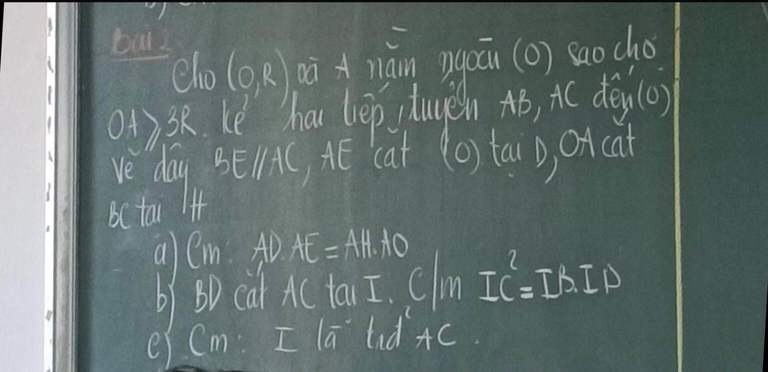 Bài 2
Cho (O,R) và A nằm ngoài (O) sao cho
OA ⩾ 3R. kẻ hai tiếp tuyến AB, AC đến (O)
vẽ dây BE // AC, AE cắt (O) tại D, OA cắt
BC tại H
a) Cm: AD.AE = AH.AO
b) BD cắt AC tại I. C/m IC² = IB.ID
c) Cm: I là tđ² AC.